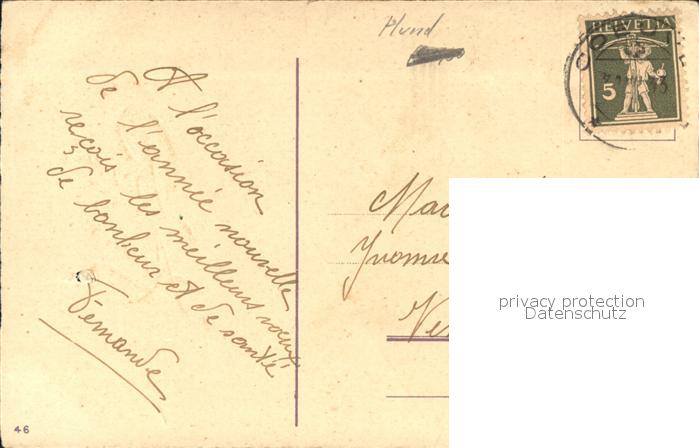 Plund
HELVETIA
5
A l'occasion
de l'année nouvelle
reçois les meilleurs vœux
de bonheur et de santé
Fernande
Yvonne
privacy protection
Datenschutz
46